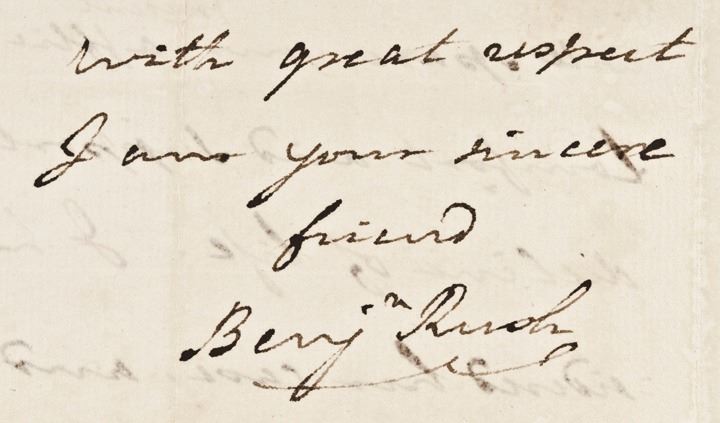 with great respect
I am your sincere
friend
Benjn Rush